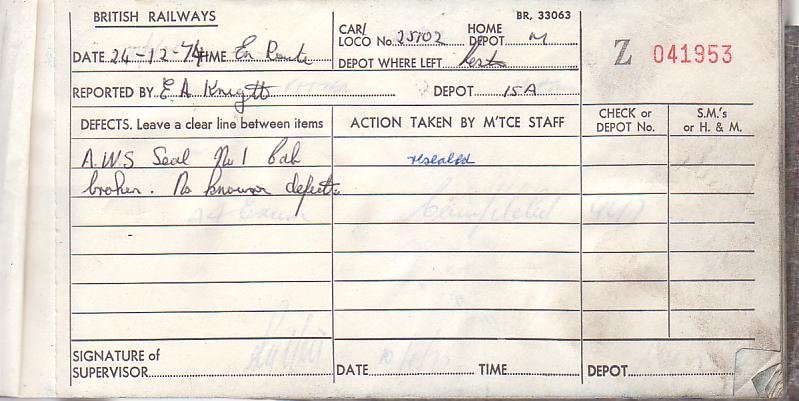 BRITISH RAILWAYS
BR, 33063
DATE 24-12-74 TIME En Route
CAR/ LOCO No. 25102 HOME DEPOT M
DEPOT WHERE LEFT
Z 041953
REPORTED BY E A Knigtt DEPOT 15A
DEFECTS. Leave a clear line between items
ACTION TAKEN BY M'TCE STAFF
CHECK or DEPOT No.
S.M.'s or H. & M.
A.W.S Seal No 1 Cab resealed
broken. No known defects
SIGNATURE of SUPERVISOR
DATE TIME DEPOT